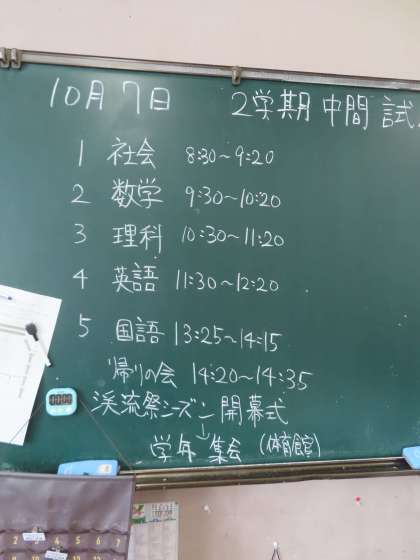 10月7日 2学期 中間 試
1 社会 8:30～9:20
2 数学 9:30～10:20
3 理科 10:30～11:20
4 英語 11:30～12:20
5 国語 13:25～14:15
帰りの会 14:20～14:35
渓流祭シーズン開幕式
↓
学年 集会 (体育館)
2 3 4 5 6 7